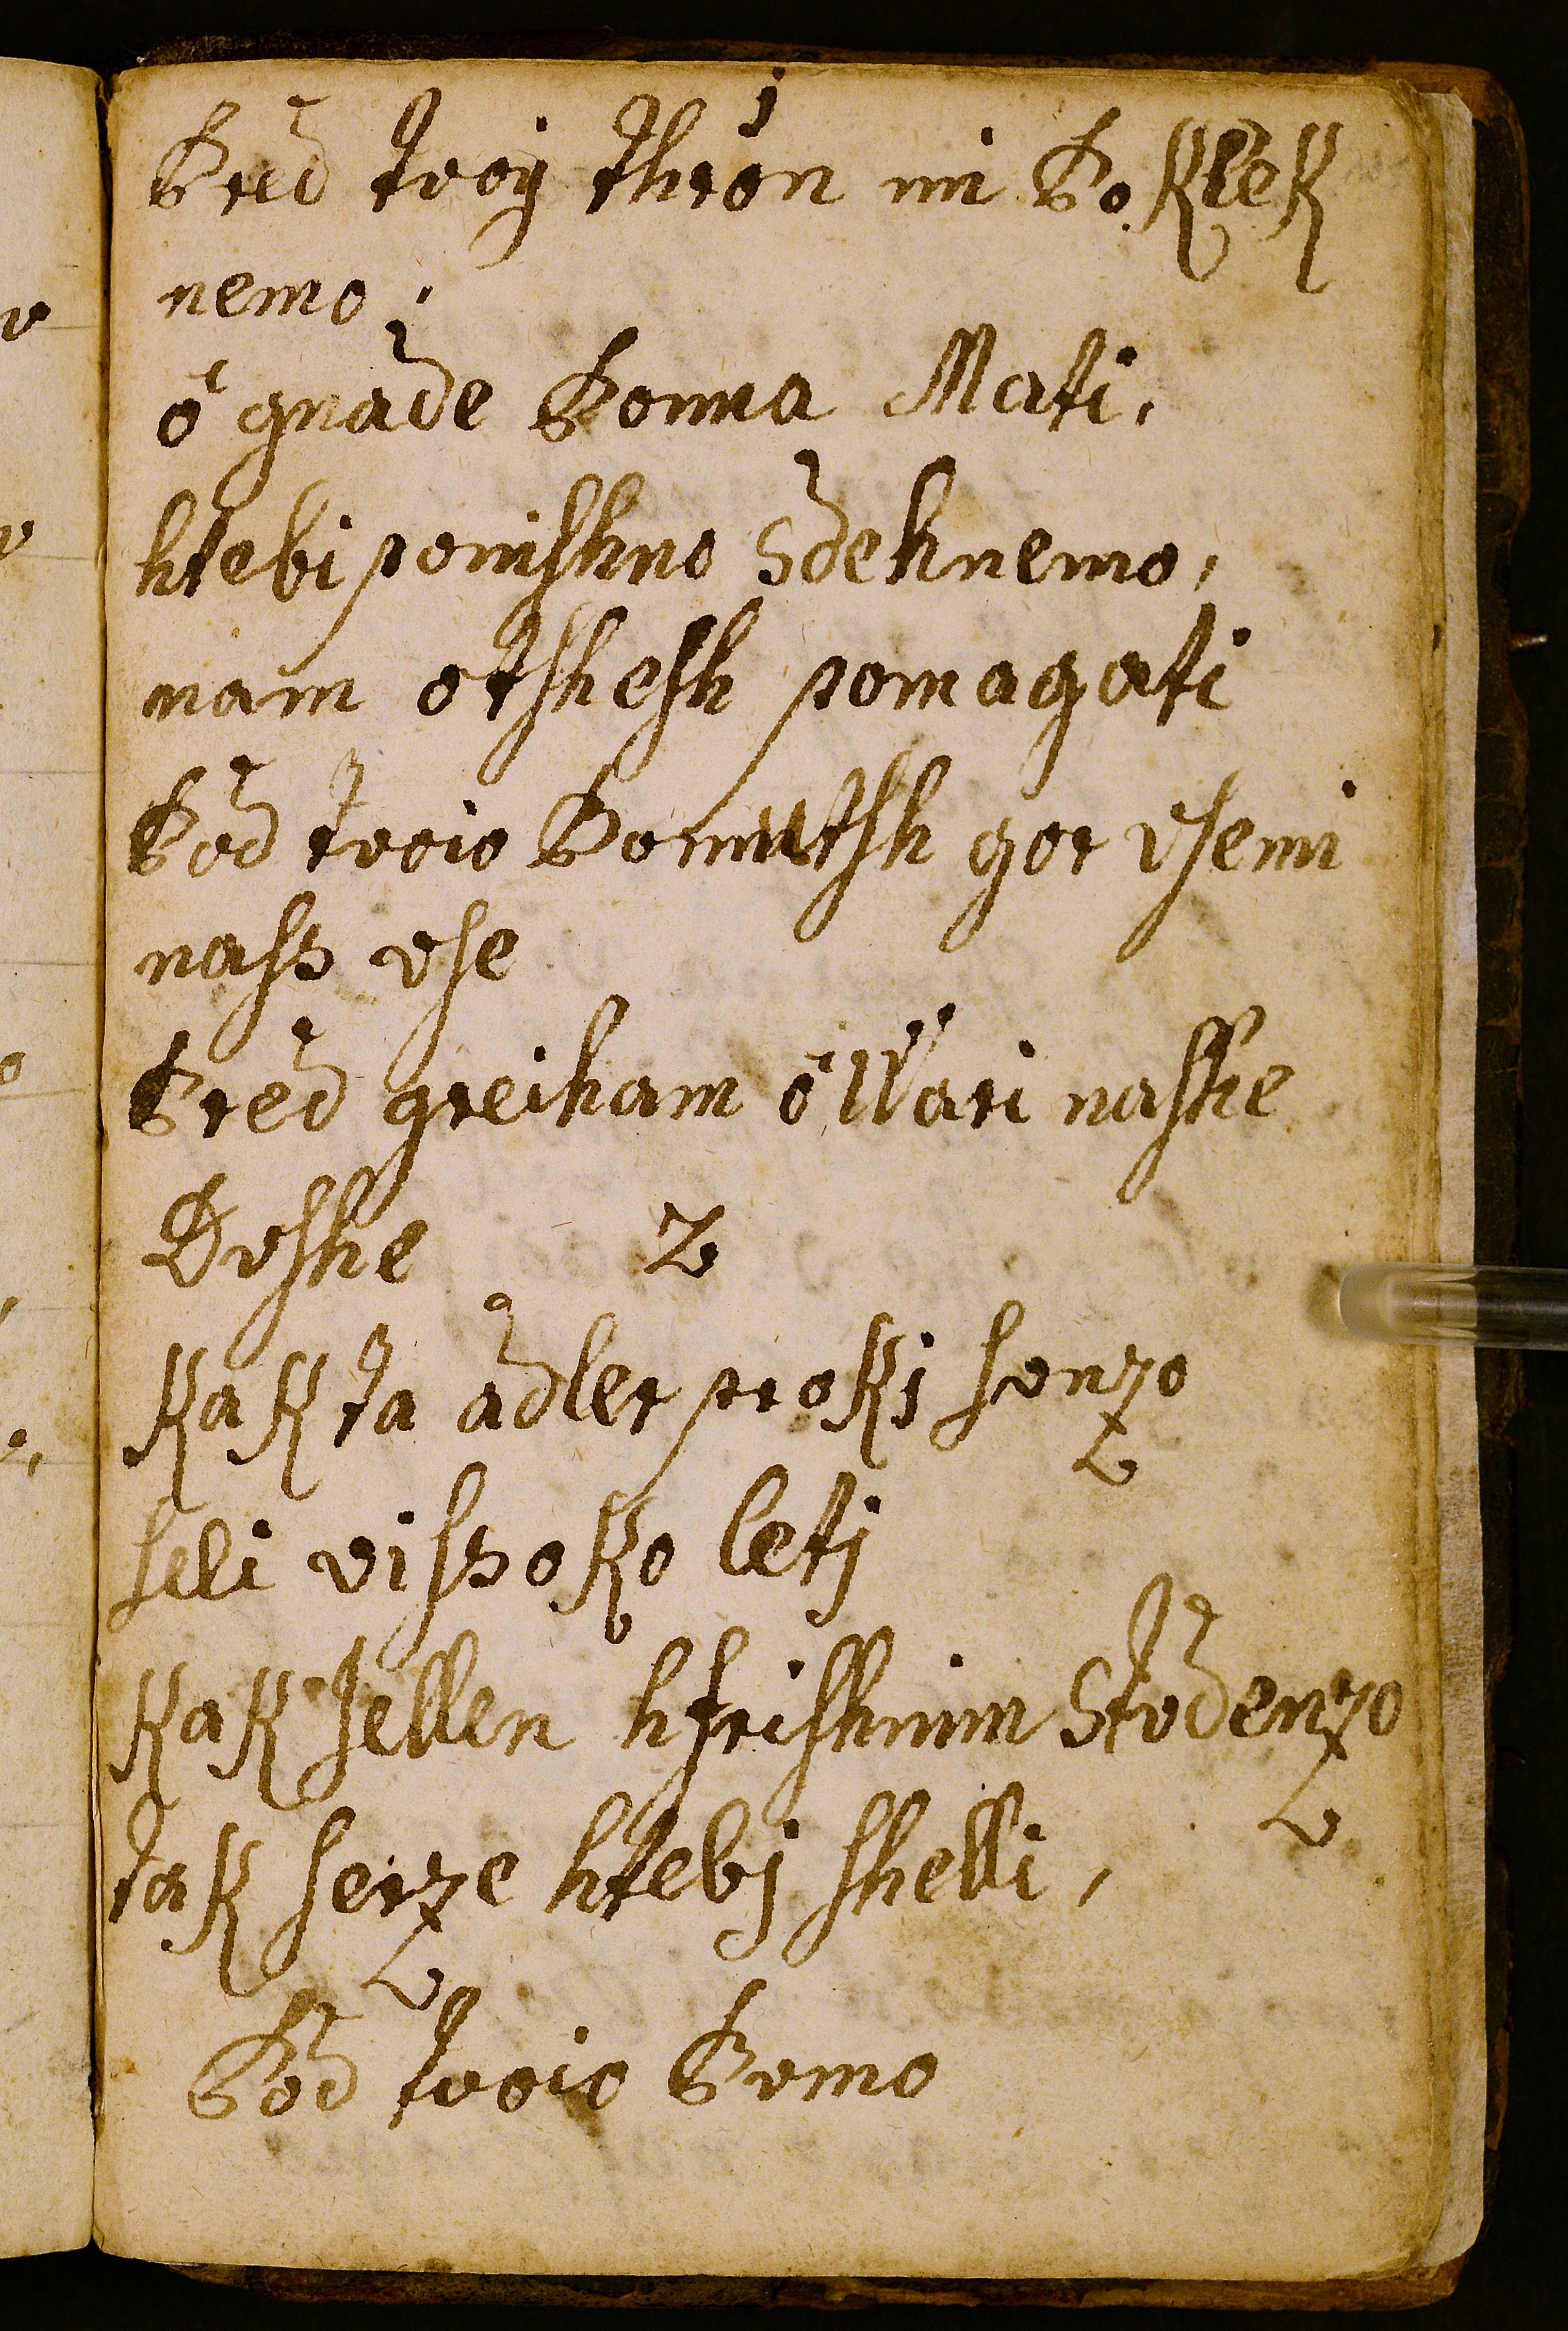 1
Pred tvoy thron mi Poklek
nemo,
ô gnade Pouna Mati,
htebi ponishno Sdehnemo,
nam otshesh pomagati
Pod tvoio Pomutsh gor vsemi
nass vse
Pred greiham ô Wari nashe
Dushe 2
KaK ta adler proki sonzo
seli vissoKo leti
KaK Jellen hfrishnim Stodenzo
taK serze htebj shelli,
Pod tvoio Pomo